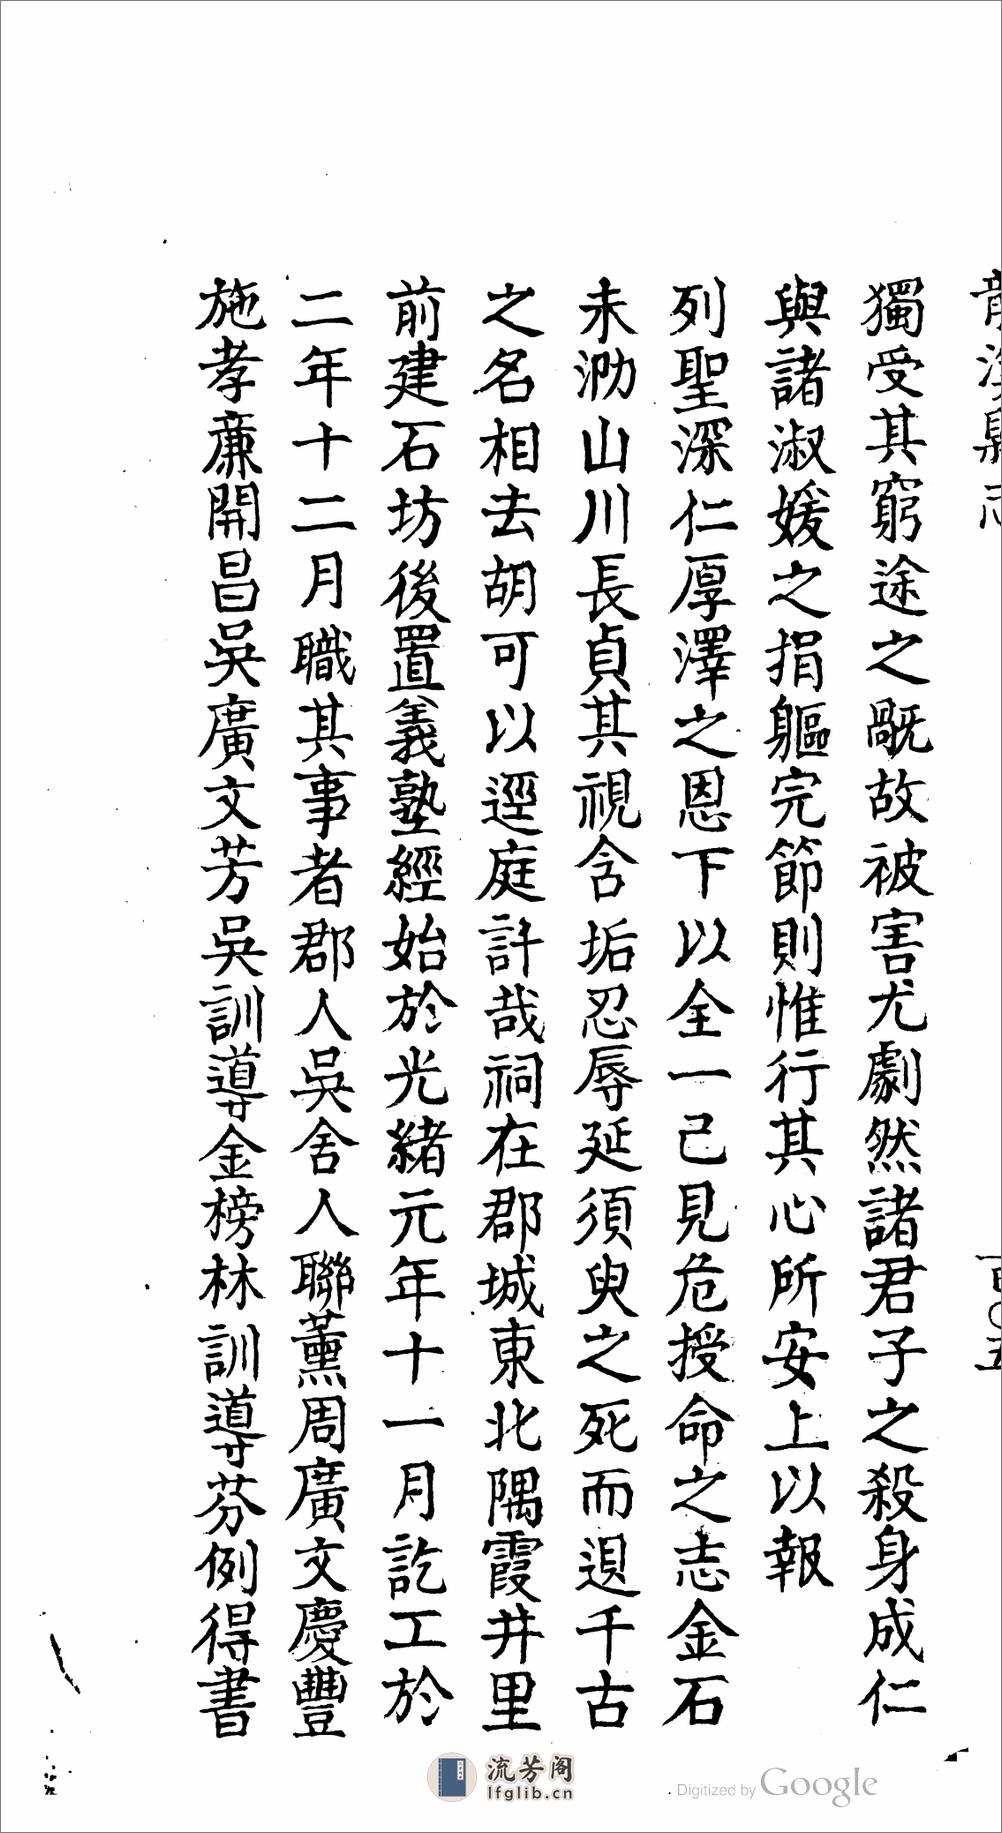 龍溪縣志
一百〇五
獨受其窮途之故被害尤劇然諸君子之殺身成仁
與諸淑媛之捐軀完節則惟行其心所安上以報
列聖深仁厚澤之恩下以全一己見危授命之志金石
未泐山川長貞其視含垢忍辱延須臾之死而千古
之名相去胡可以逕庭許哉祠在郡城東北隅霞井里
前建石坊後置義塾經始於光緒元年十一月訖工於
二年十二月職其事者郡人吳舍人聯薰周廣文慶豐
施孝廉開昌吳廣文芳吳訓導金榜林訓導芬例得書
流芳阁
lfglib.cn
Digitized by Google